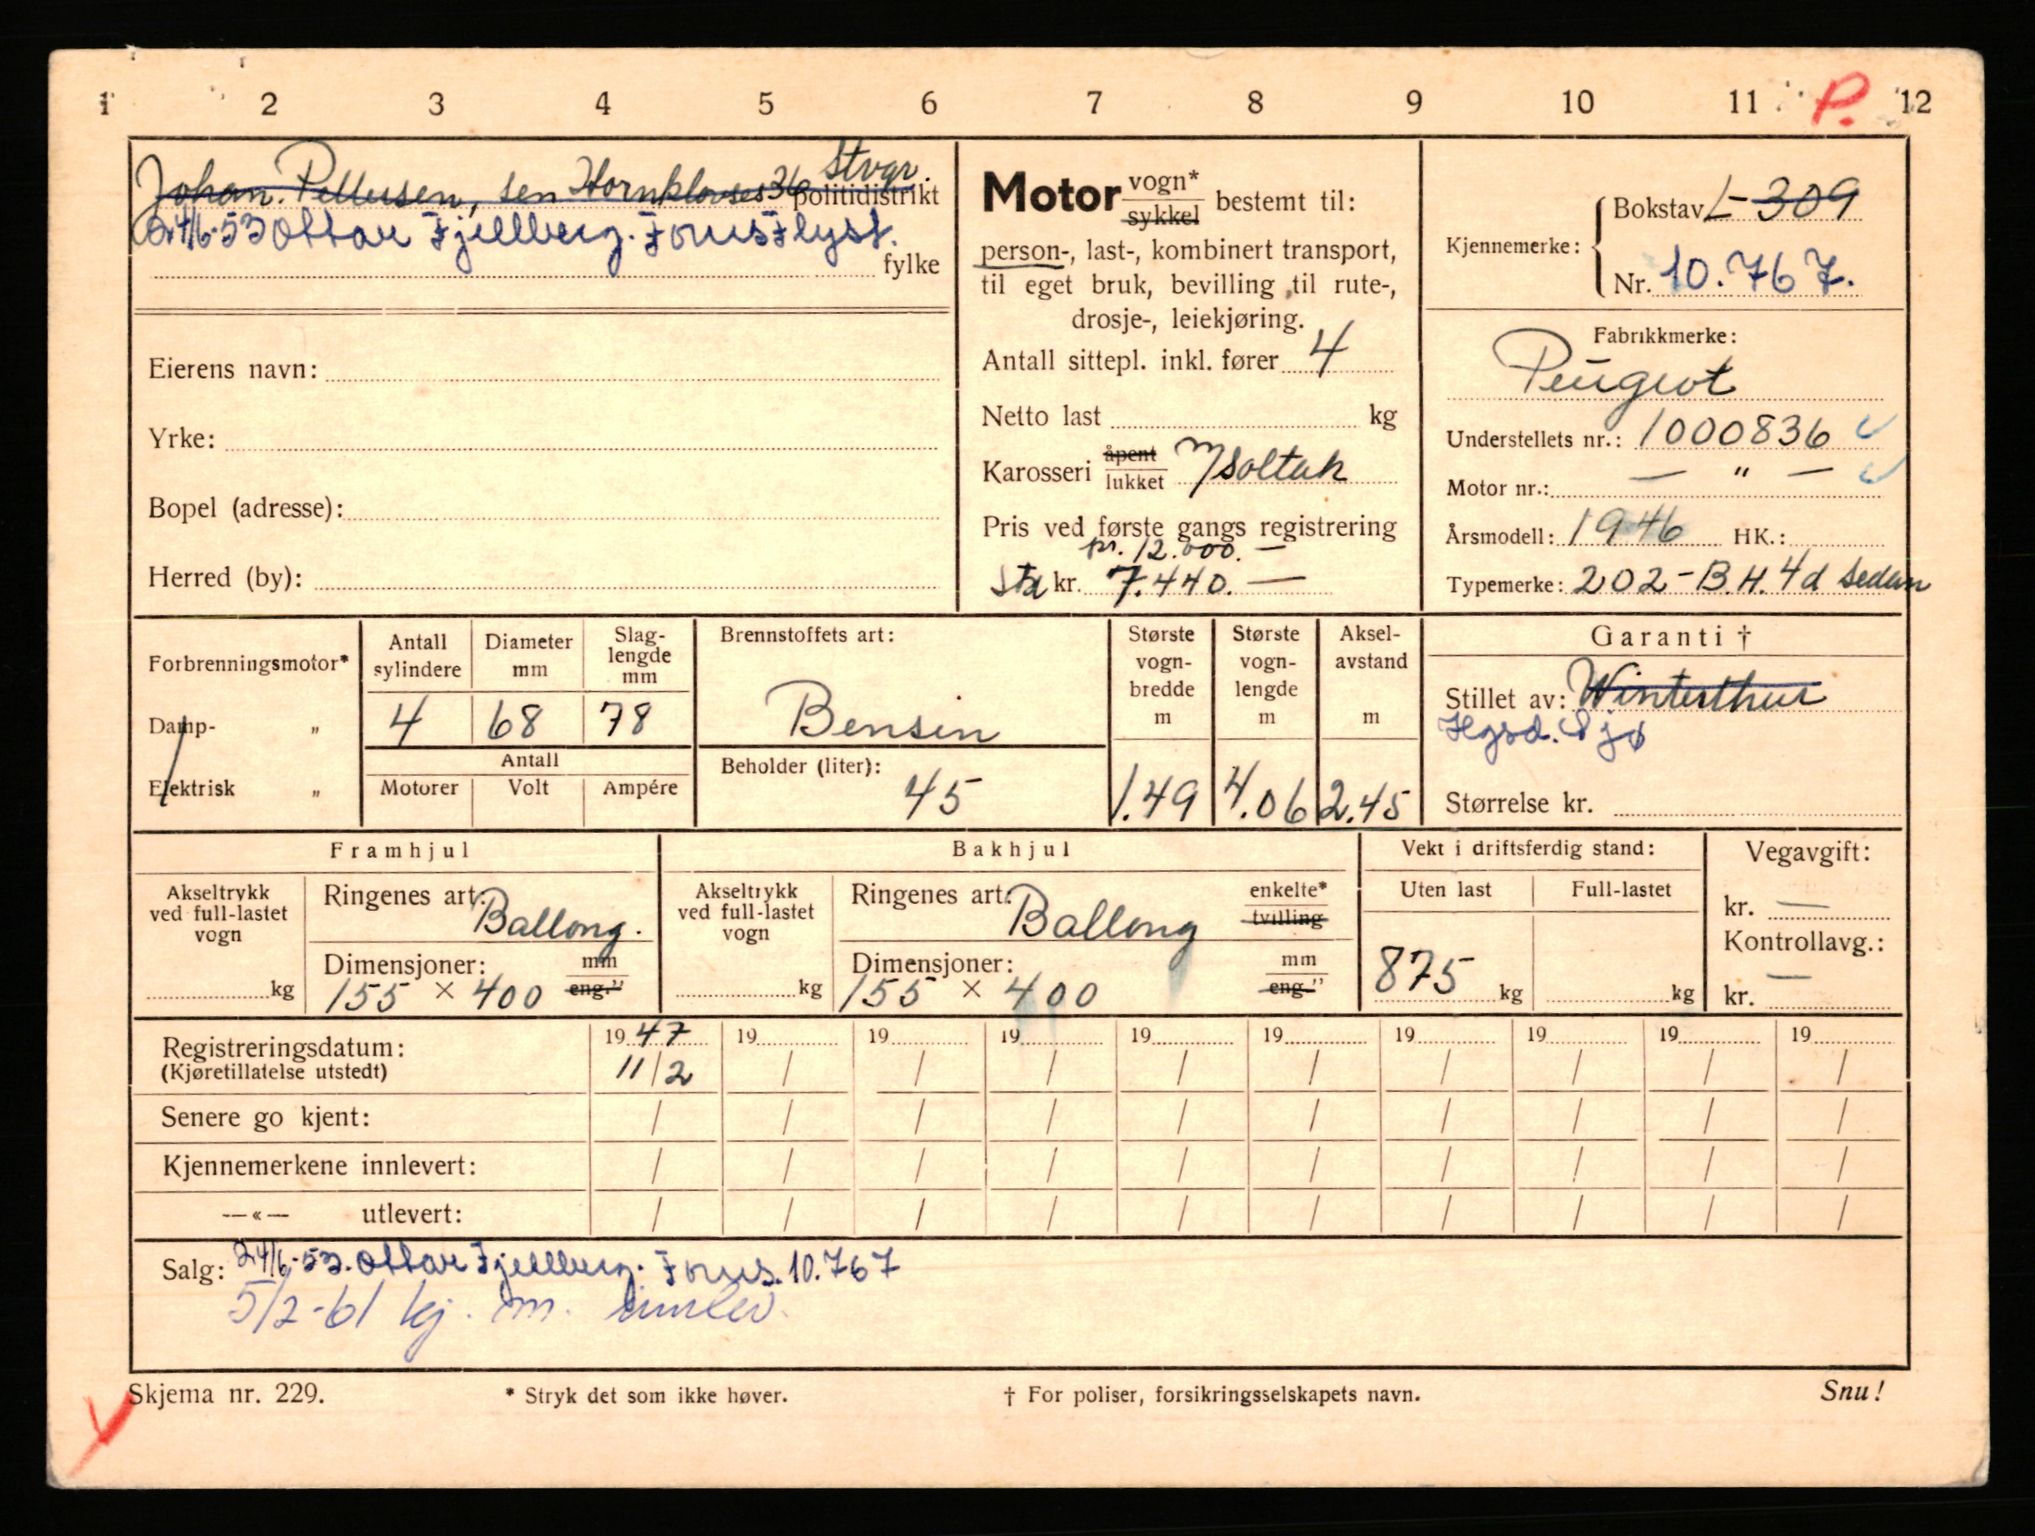 1 2 3 4 5 6 7 8 9 10 11 P. 12
Johan. Pettersen, sen Hornklovesg 36 Stvgr.
politidistrikt
24/6-53 Ottar Fjellberg. Forus Flyst.
fylke
Eierens navn:
Yrke:
Bopel (adresse):
Herred (by):
Motor vogn* / sykkel bestemt til:
person-, last-, kombinert transport,
til eget bruk, bevilling til rute-,
drosje-, leiekjøring.
Antall sittepl. inkl. fører 4
Netto last kg
Karosseri åpent / lukket m/soltak
Pris ved første gangs registrering
pr. 12.000.—
kr. 7.440.—
Kjennemerke: Bokstav L-309
Nr. 10.767.
Fabrikkmerke:
Peugeot
Understellets nr.: 1000836
Motor nr.: — " —
Årsmodell: 1946 HK.:
Typemerke: 202-B.H. 4d sedan
Forbrenningsmotor*
Damp- „
Elektrisk „
Antall sylindere 4
Diameter mm 68
Slaglengde mm 78
Antall
Motorer Volt Ampére
Brennstoffets art:
Bensin
Beholder (liter):
45
Største vogn-bredde m 1.49
Største vogn-lengde m 4.06
Aksel-avstand m 2.45
Garanti †
Stillet av: Winterthur
Hgsd. Sjø
Størrelse kr.
Framhjul
Akseltrykk ved full-lastet vogn kg
Ringenes art: Ballong.
Dimensjoner: mm / eng."
155 × 400
Bakhjul
Akseltrykk ved full-lastet vogn kg
Ringenes art: Ballong enkelte* / tvilling
Dimensjoner: mm / eng."
155 × 400
Vekt i driftsferdig stand:
Uten last Full-lastet
875 kg kg
Vegavgift:
kr. —
Kontrollavg.:
kr. —
Registreringsdatum: 19 47 19 19 19 19 19 19 19 19 19
(Kjøretillatelse utstedt) 11/2 / / / / / / / / /
Senere go kjent: / / / / / / / / / /
Kjennemerkene innlevert: / / / / / / / / / /
—«— utlevert: / / / / / / / / / /
Salg: 24/6-53. Ottar Fjellberg. Forus. 10.767
5/2-61 kj. m. innlev.
Skjema nr. 229. * Stryk det som ikke høver. † For poliser, forsikringsselskapets navn. Snu!